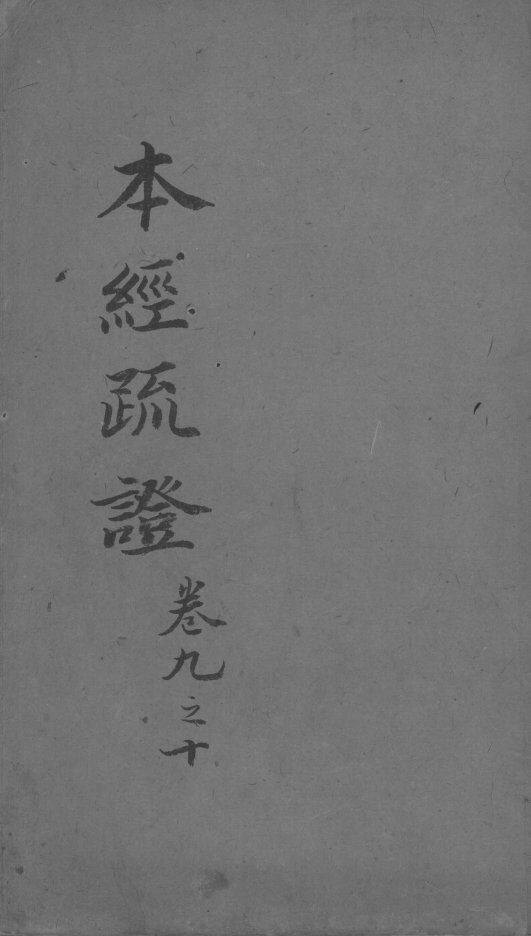 本經疏證
卷九之十